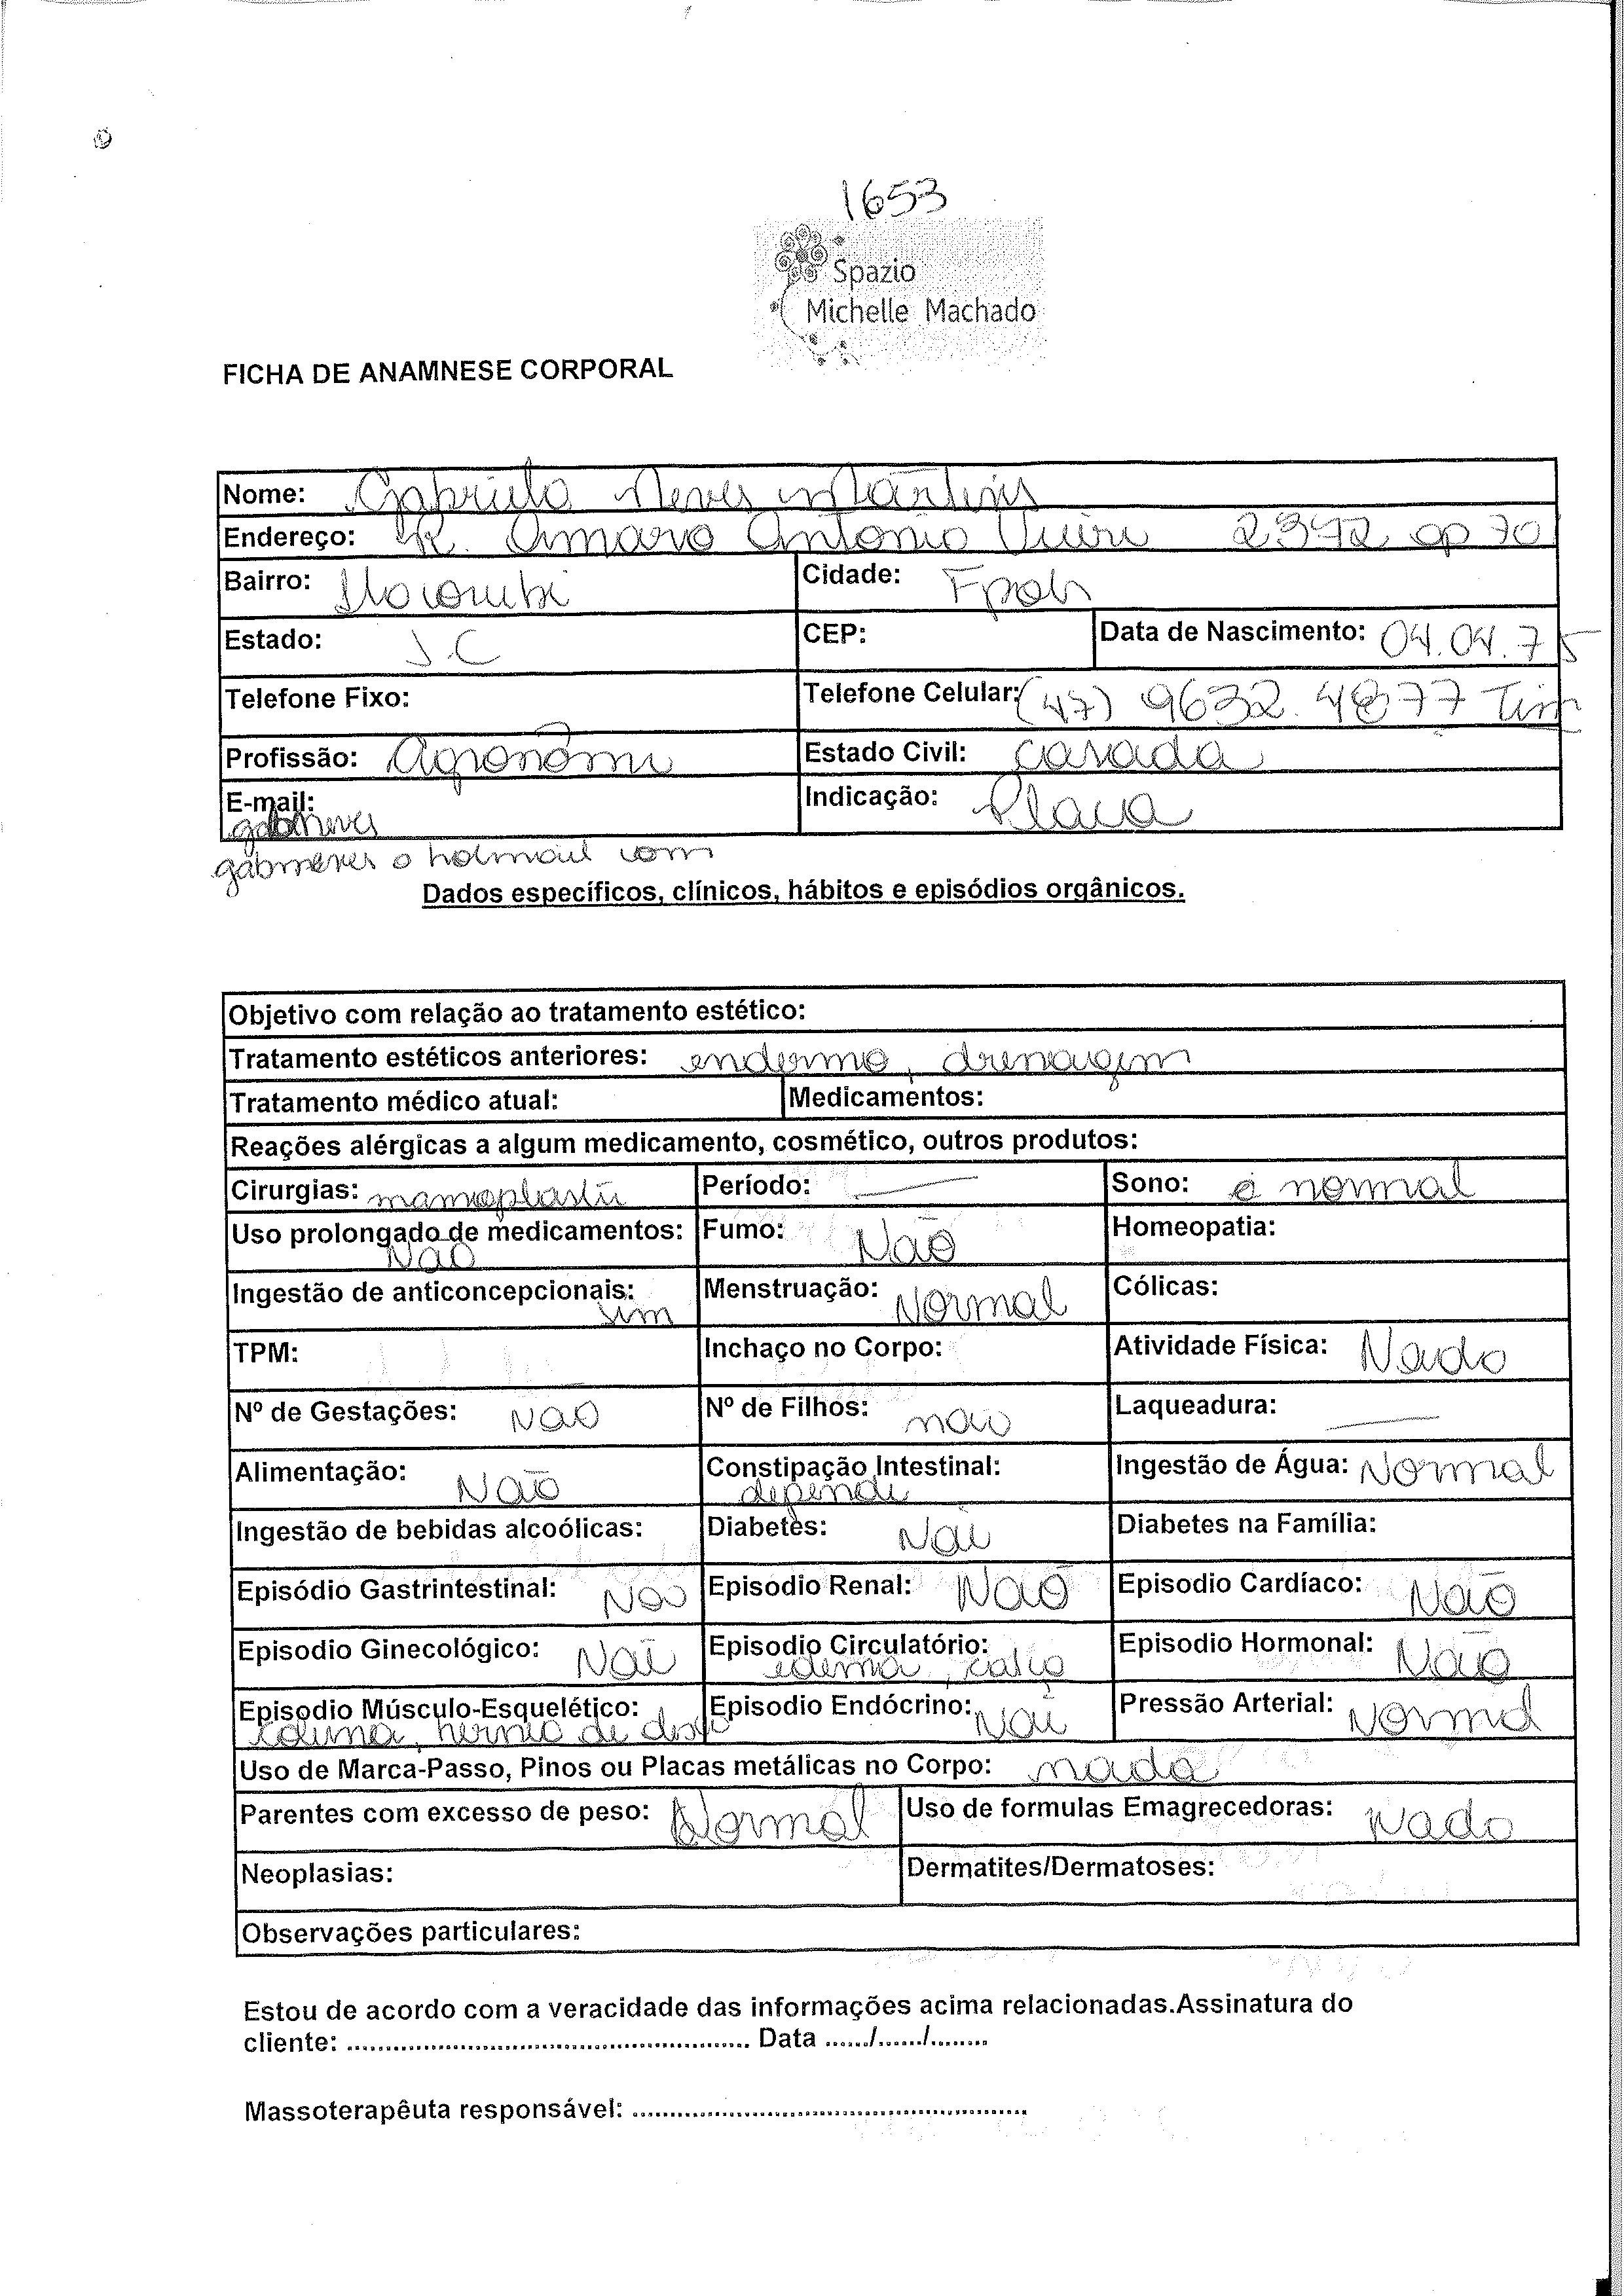 1653
Spazio
Michelle Machado
FICHA DE ANAMNESE CORPORAL
Nome: Gabriela Neves Martins
Endereço: R. Amaro Antonio Vieira 2372 ap 70
Bairro: Itacorubi Cidade: Fpolis
Estado: SC CEP: Data de Nascimento: 04.04.75
Telefone Fixo: Telefone Celular: (47) 9632.4877 Tim
Profissão: Agronôma Estado Civil: casada
E-mail: Indicação: Placa
gabneves
gabneves @ hotmail com
Dados específicos, clínicos, hábitos e episódios orgânicos.
Objetivo com relação ao tratamento estético:
Tratamento estéticos anteriores: endermo, drenagem
Tratamento médico atual: Medicamentos:
Reações alérgicas a algum medicamento, cosmético, outros produtos:
Cirurgias: mamoplastia Período: — Sono: é normal
Uso prolongado de medicamentos: Não Fumo: Não Homeopatia:
Ingestão de anticoncepcionais: sim Menstruação: Normal Cólicas:
TPM: Inchaço no Corpo: Atividade Física: Nado
Nº de Gestações: Não Nº de Filhos: não Laqueadura: —
Alimentação: Não Constipação Intestinal: depende Ingestão de Água: Normal
Ingestão de bebidas alcoólicas: Diabetes: Não Diabetes na Família:
Episódio Gastrintestinal: Não Episodio Renal: Não Episodio Cardíaco: Não
Episodio Ginecológico: Não Episodio Circulatório: edema, Episodio Hormonal: Não
Episodio Músculo-Esquelético: coluna, hernia de disco Episodio Endócrino: Não Pressão Arterial: Normal
Uso de Marca-Passo, Pinos ou Placas metálicas no Corpo: nada
Parentes com excesso de peso: Normal Uso de formulas Emagrecedoras: nado
Neoplasias: Dermatites/Dermatoses:
Observações particulares:
Estou de acordo com a veracidade das informações acima relacionadas.Assinatura do
cliente: .................................................... Data ....../....../........
Massoterapêuta responsável: ...................................................